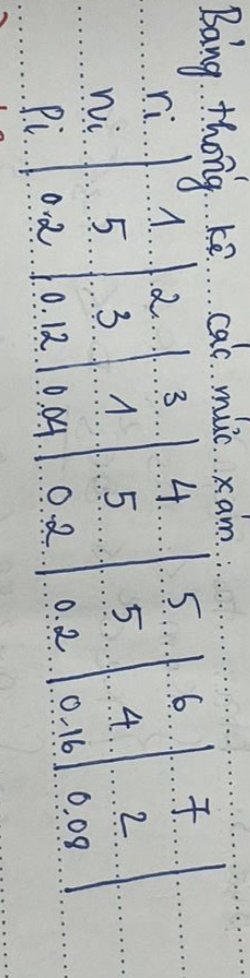 Bảng thống kê các mức xám:
ri | 1 | 2 | 3 | 4 | 5 | 6 | 7 |
ni | 5 | 3 | 1 | 5 | 5 | 4 | 2 |
Pi | 0.2 | 0.12 | 0.04 | 0.2 | 0.2 | 0.16 | 0.08 |